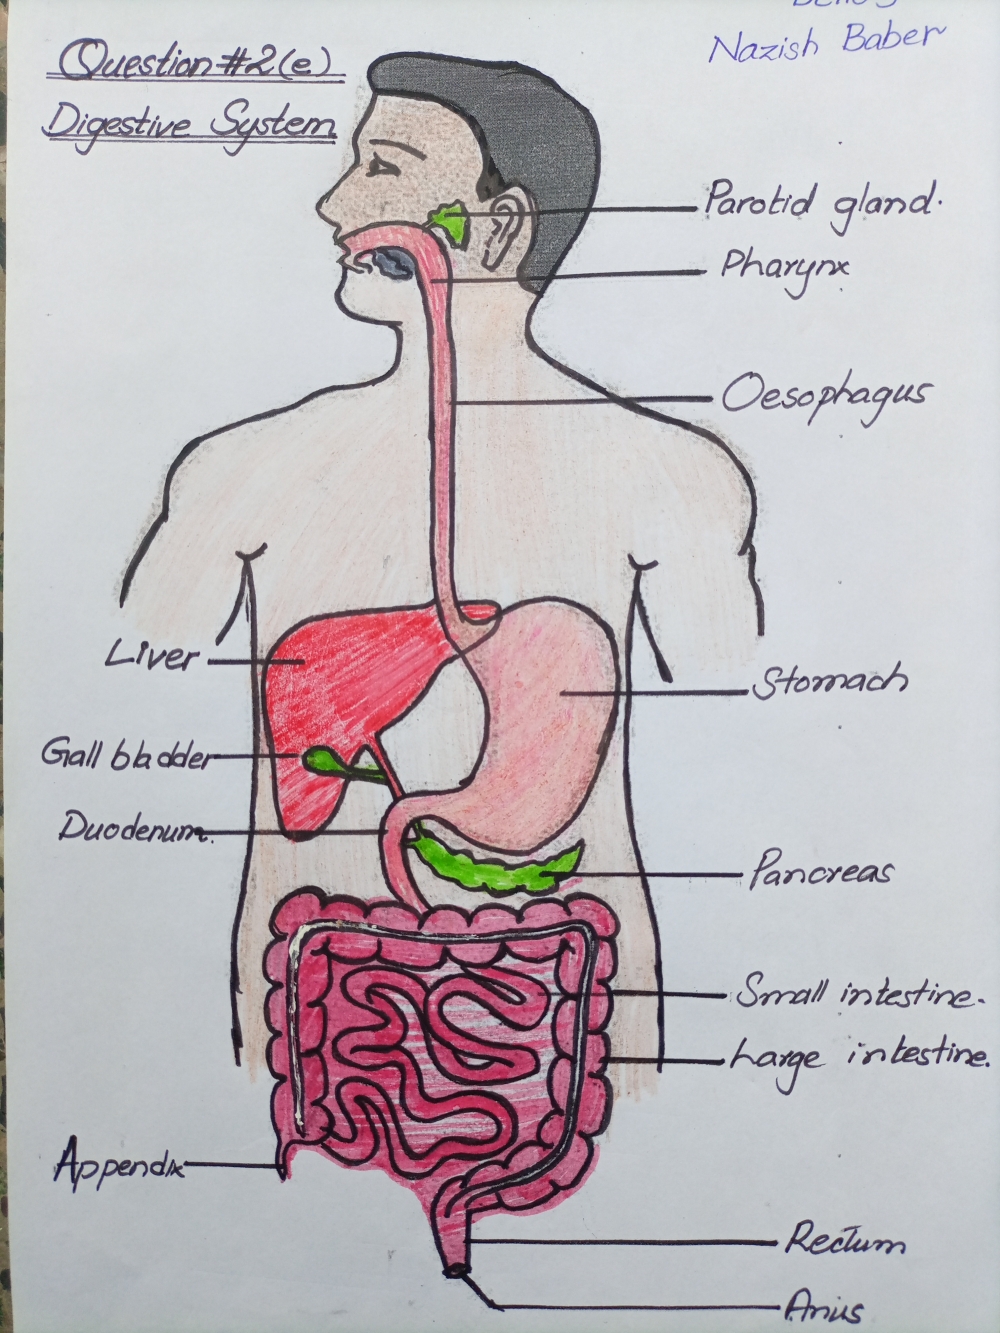 Nazish Baber
Question #2(e)
Digestive System
Parotid gland.
Pharynx
Oesophagus
Liver
Stomach
Gall bladder
Duodenum.
Pancreas
Small intestine.
Large intestine.
Appendix
Rectum
Anus